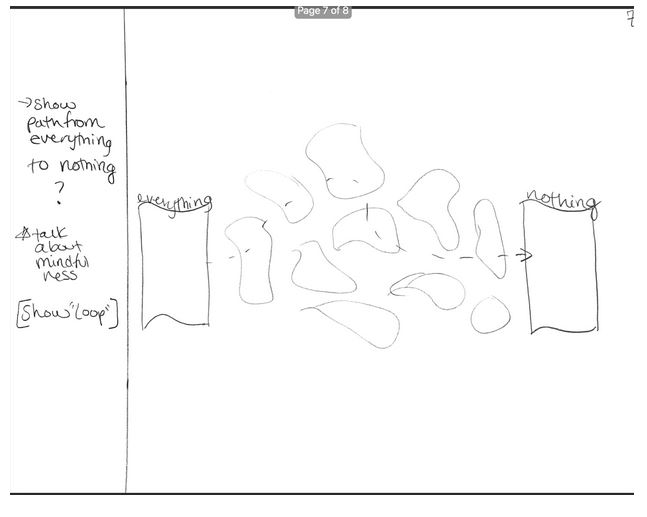 Page 7 of 8
7
→ show
path from
everything
to nothing
?
☆ talk
about
mindful
ness
[Show "Loop"]
everything
nothing